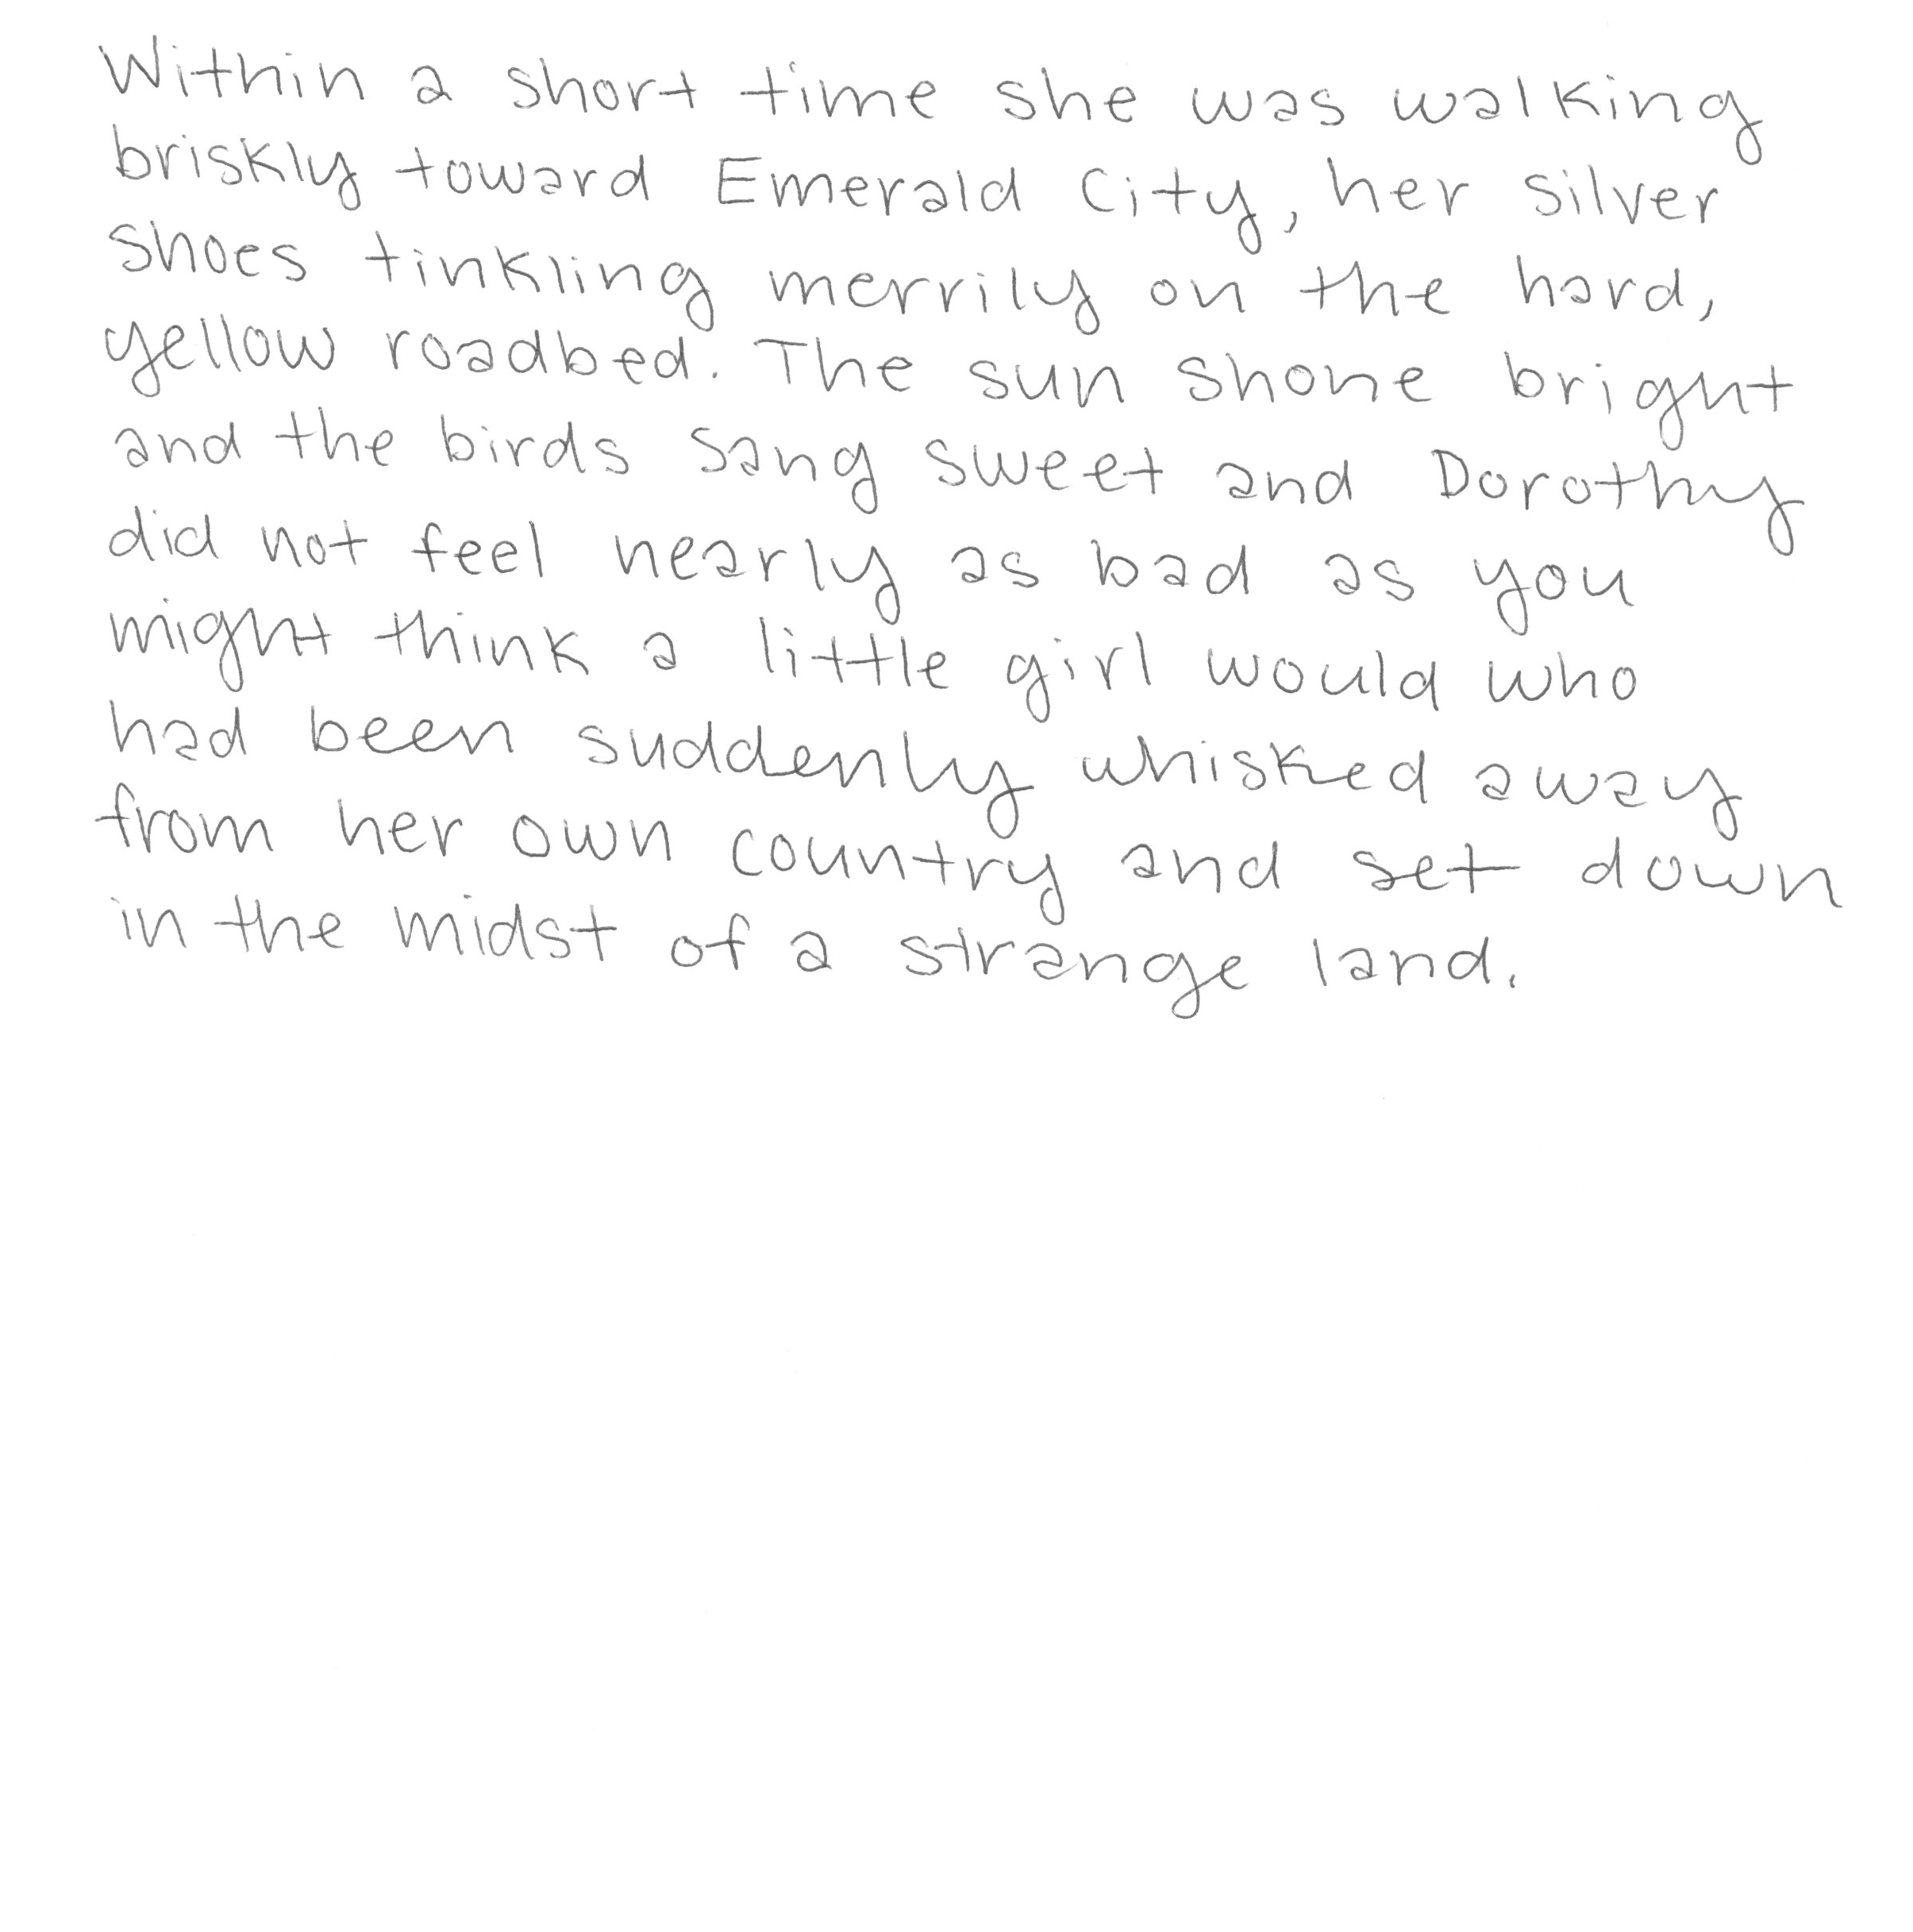 Within a short time she was walking
briskly toward Emerald City, her silver
shoes tinkling merrily on the hard,
yellow roadbed. The sun shone bright
and the birds sang sweet and Dorothy
did not feel nearly as bad as you
might think a little girl would who
had been suddenly whisked away
from her own country and set down
in the midst of a strange land.